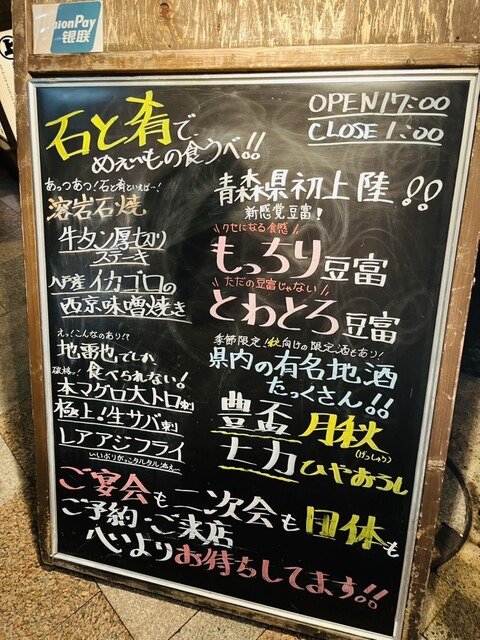 UnionPay
银联
OPEN 17:00
CLOSE 1:00
石と肴で
めぇ〜もの食うべ!!
あっつあつ!石と肴といえばー!
溶岩石焼
牛タン厚切り
ステーキ
八戸産イカゴロの
西京味噌焼き
えっ!こんなのあり!?
地雷也でしか
破格ッ!食べられない!
本マグロ大トロ刺
極上!生サバ刺
レアアジフライ
〜いぶりがっこタルタル添え〜
青森県初上陸!!
新感覚豆富!
\\クセになる食感//
もっちり豆富
\\ただの豆富じゃない//
とわとろ豆富
季節限定!秋向けの限定酒もあり!
県内の有名地酒
たっくさん!!
豊盃 月秋
(げっしゅう)
ヒカ ひやおろし
ご宴会も二次会も団体も
ご予約・ご来店
心よりお待ちしてます!!